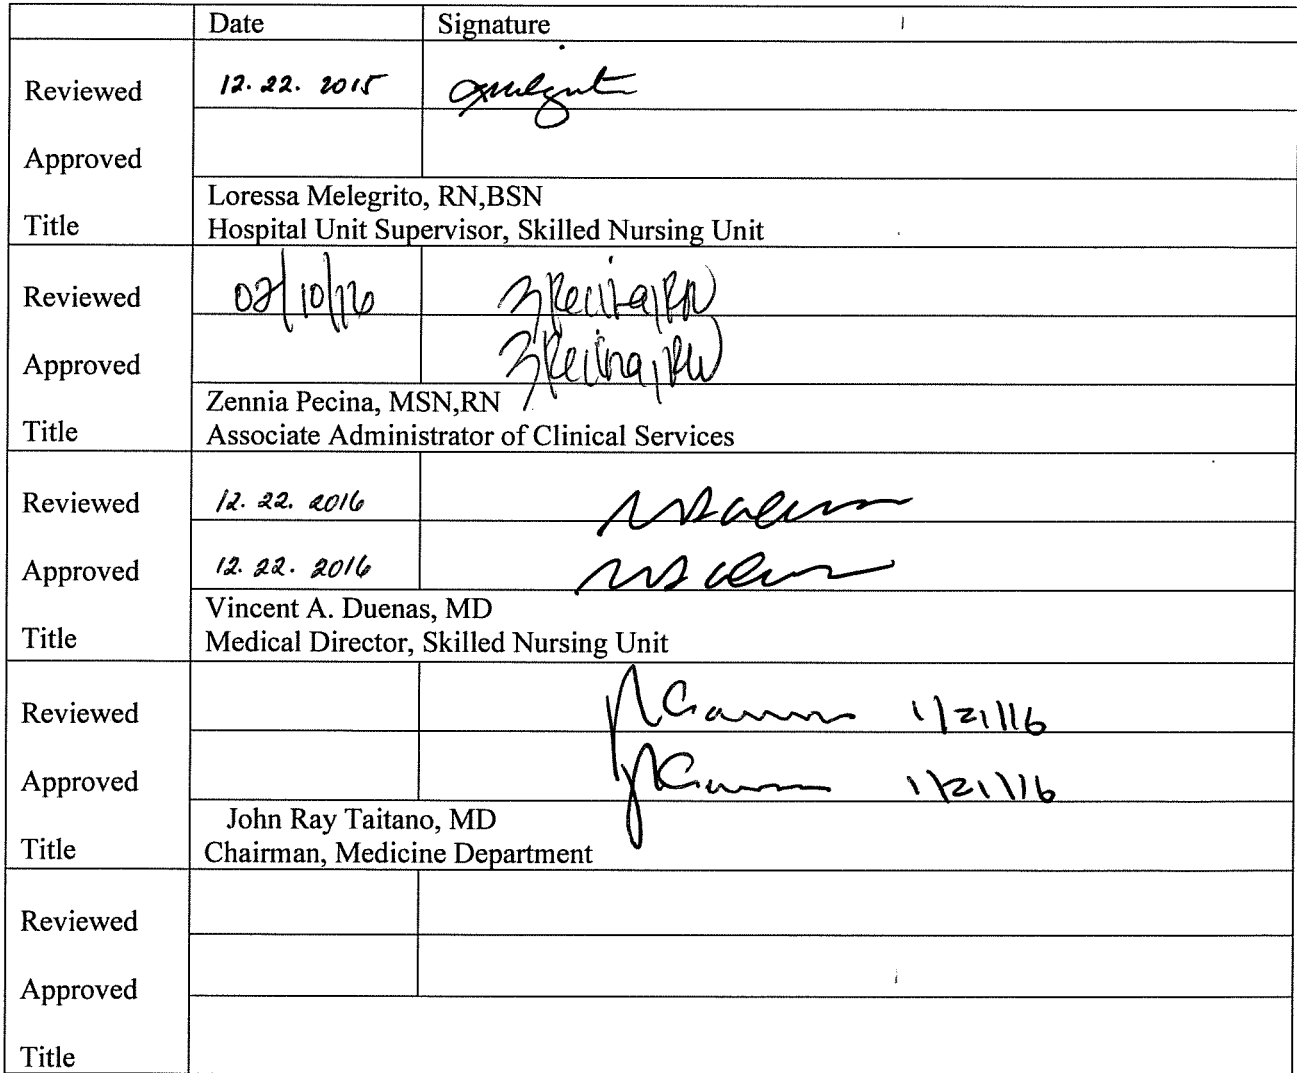 Date Signature
Reviewed 12. 22. 2015
Approved
Loressa Melegrito, RN,BSN
Title Hospital Unit Supervisor, Skilled Nursing Unit
Reviewed 02/10/16 ZPecina, RN
Approved ZPecina, RN
Zennia Pecina, MSN,RN
Title Associate Administrator of Clinical Services
Reviewed 12. 22. 2016
Approved 12. 22. 2016
Vincent A. Duenas, MD
Title Medical Director, Skilled Nursing Unit
Reviewed 1/21/16
Approved 1/21/16
John Ray Taitano, MD
Title Chairman, Medicine Department
Reviewed
Approved
Title